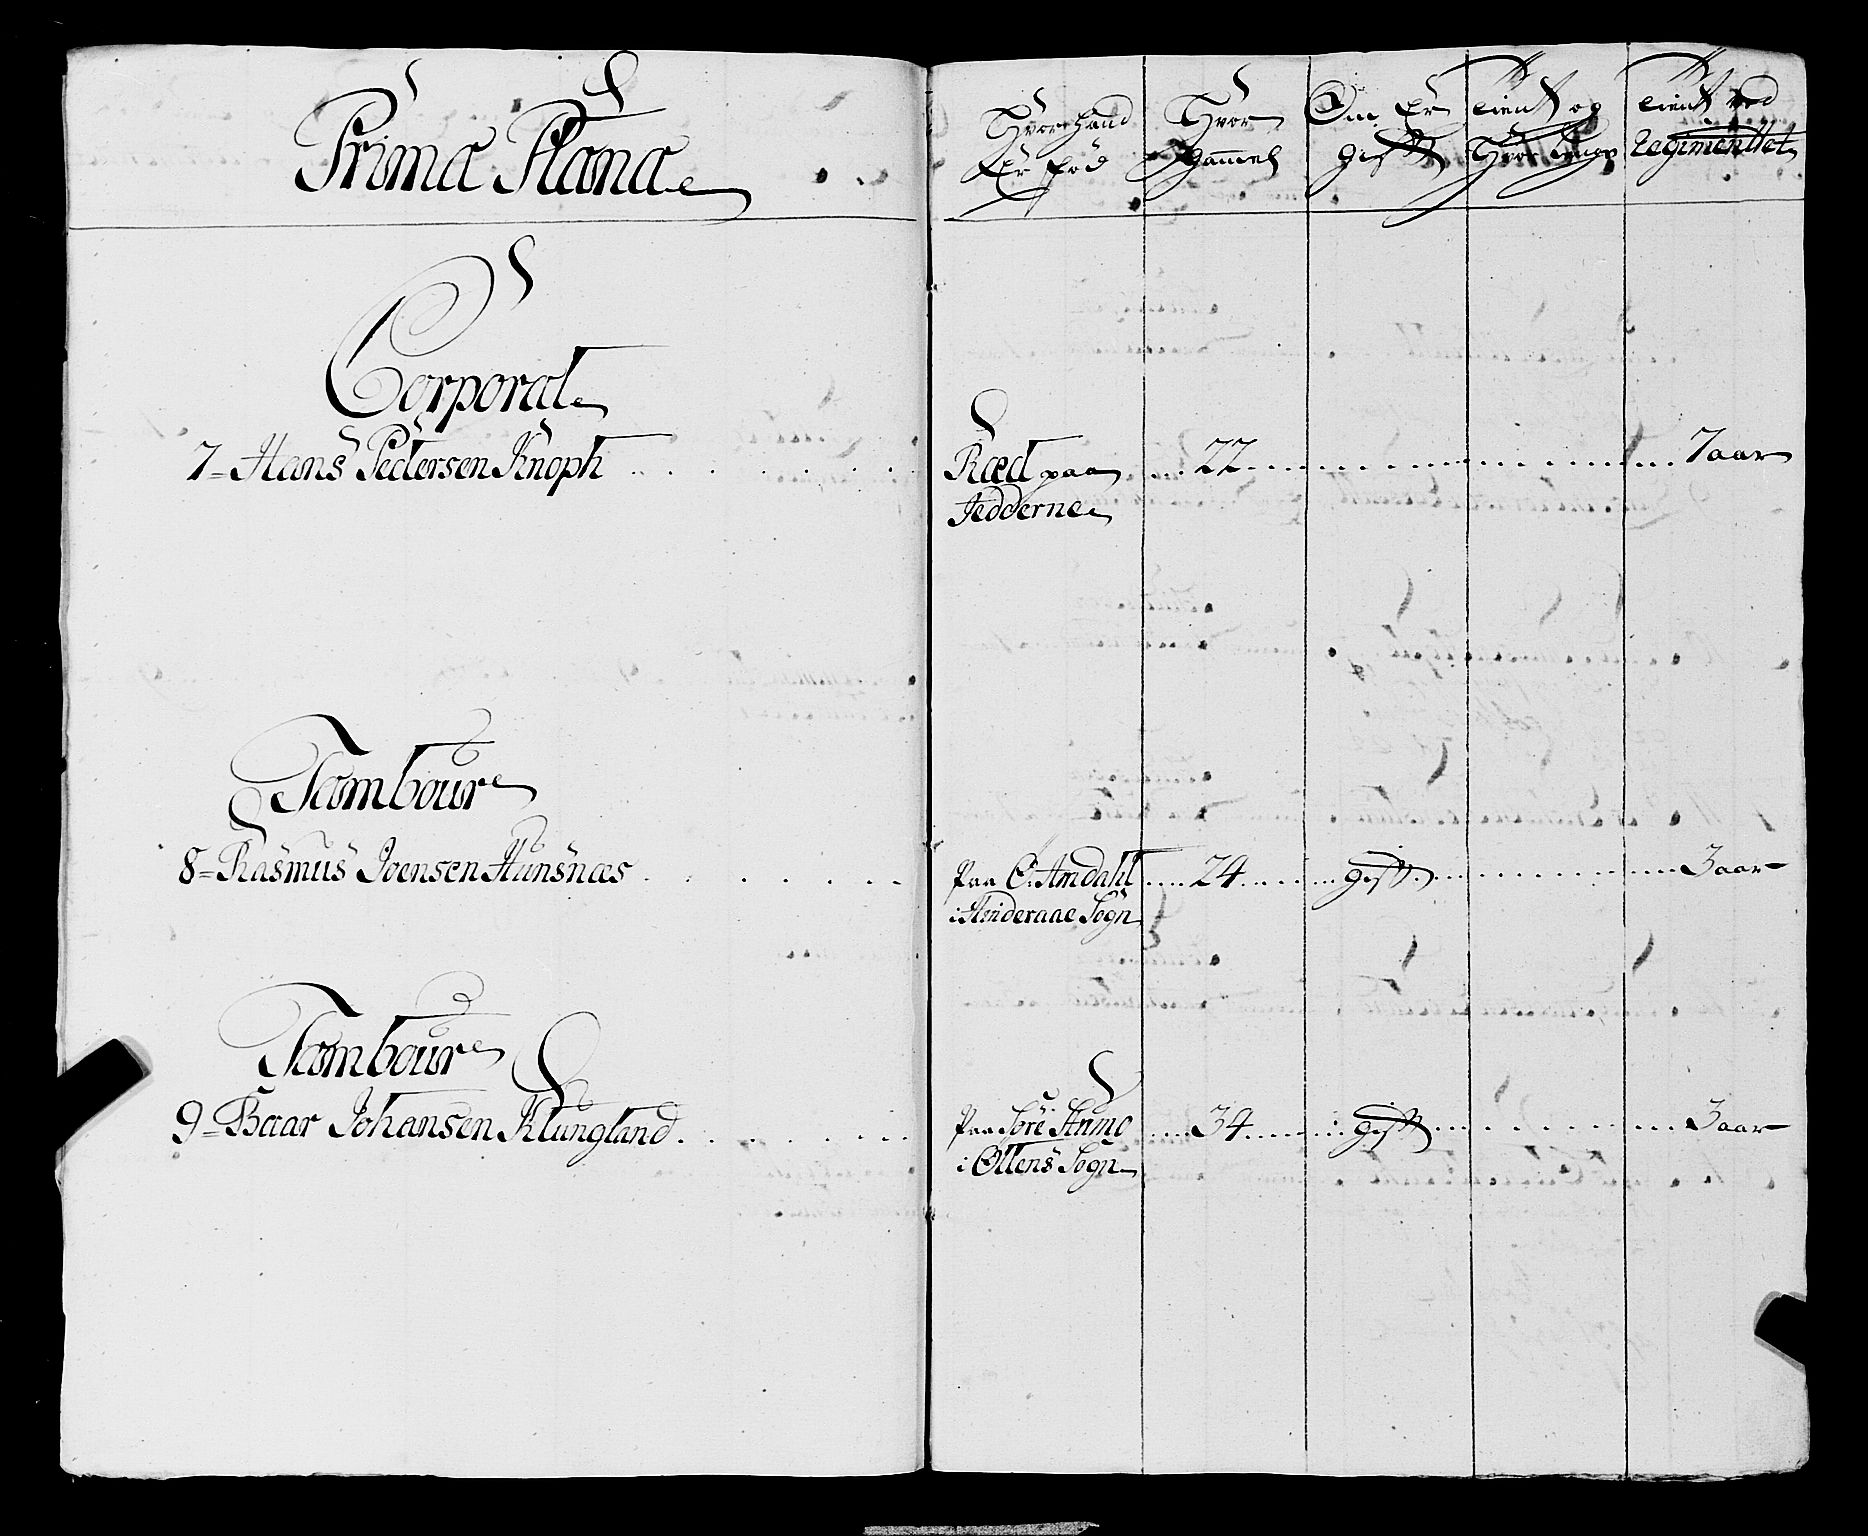 Prima Plana
Hvor hand Er föd
Hvor gammel
Om Er gift
tient og Hvor lenge
tient ved Regimenttet
Corporal
7= Hans Pedersen Knoph
Ræd paa
Jedderne
22
7 aar
Tambour
8= Rasmus Joensen Hunsnæs
Paa Ö: Amdahl
24
gift
3 aar
i Hinderaae Sogn
Tambour
9= Baar Johansen Klungland
Paa Söre
34
gift
3 aar
i Øllens Sogn